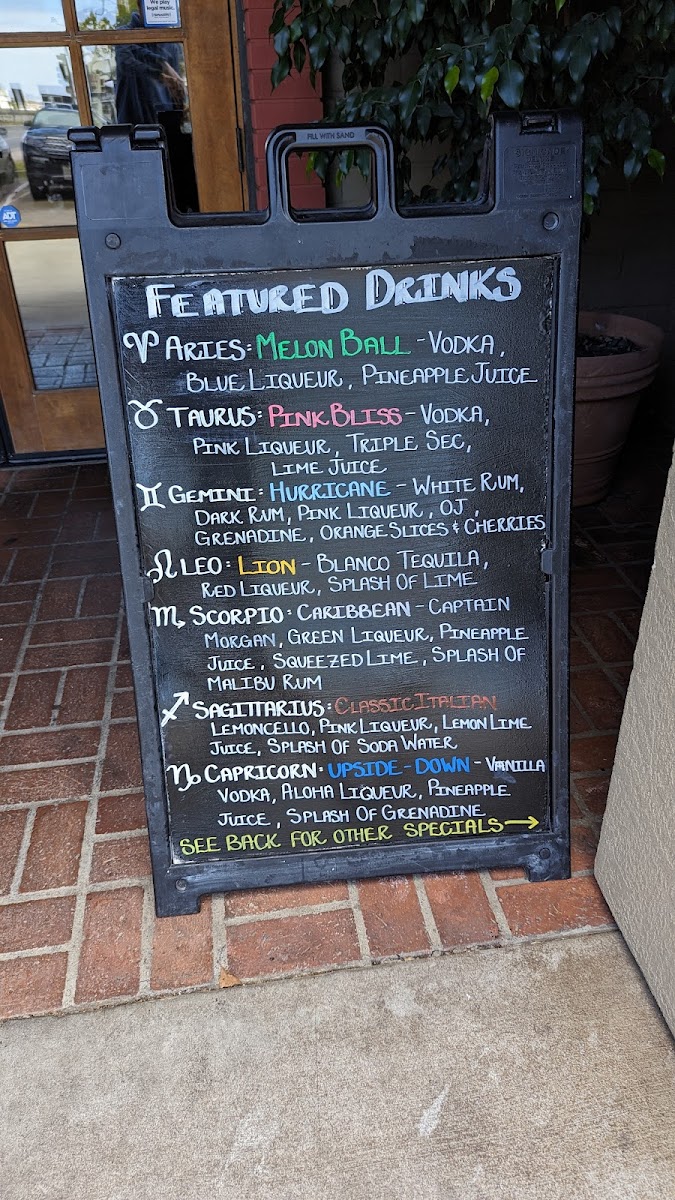 We play
legal music.
ADT
FILL WITH SAND
FEATURED DRINKS
♈ ARIES: MELON BALL - VODKA,
BLUE LIQUEUR, PINEAPPLE JUICE
♉ TAURUS: PINK BLISS - VODKA,
PINK LIQUEUR, TRIPLE SEC,
LIME JUICE
♊ GEMINI: HURRICANE - WHITE RUM,
DARK RUM, PINK LIQUEUR, OJ,
GRENADINE, ORANGE SLICES & CHERRIES
♌ LEO: LION - BLANCO TEQUILA,
RED LIQUEUR, SPLASH OF LIME
♏ SCORPIO: CARIBBEAN - CAPTAIN
MORGAN, GREEN LIQUEUR, PINEAPPLE
JUICE, SQUEEZED LIME, SPLASH OF
MALIBU RUM
♐ SAGITTARIUS: CLASSIC ITALIAN
LEMONCELLO, PINK LIQUEUR, LEMON LIME
JUICE, SPLASH OF SODA WATER
♑ CAPRICORN: UPSIDE-DOWN - VANILLA
VODKA, ALOHA LIQUEUR, PINEAPPLE
JUICE, SPLASH OF GRENADINE
SEE BACK FOR OTHER SPECIALS →